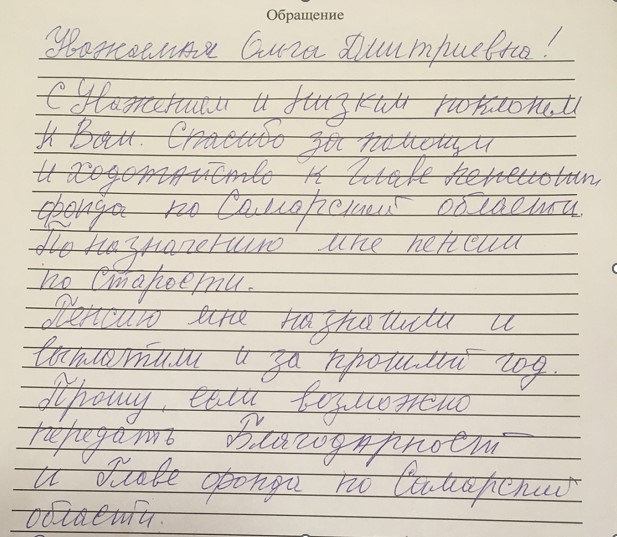 Обращение
Уважаемая Ольга Дмитриевна!
С Уважением и низким поклонем
к Вам. Спасибо за помощи
и ходотайство к Главе пенсионн
фонда по Самарский области.
По назначению мне пенсии
по старости.
Пенсию мне назначили и
выплатили и за прошлый год.
Прошу, если возможно
передать Благодарност
и Главе фонда по Самарский
области.